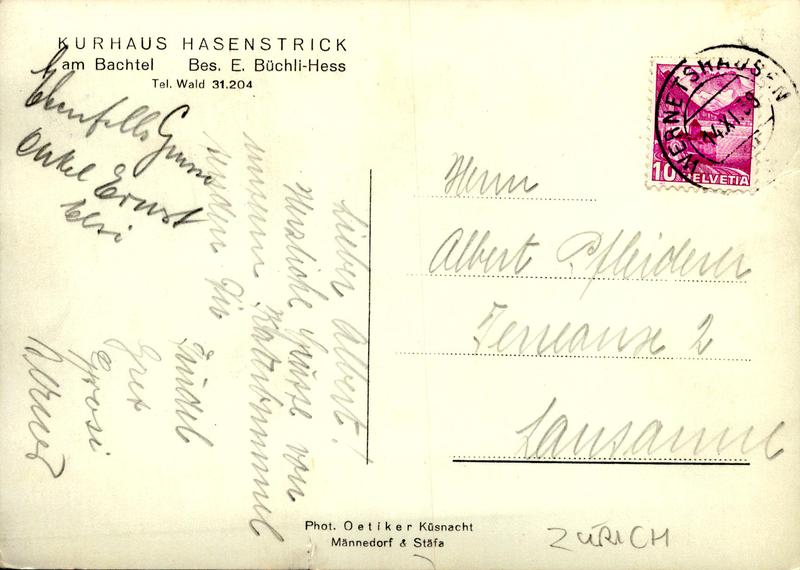 KURHAUS HASENSTRICK
am Bachtel Bes. E. Büchli-Hess
Tel. Wald 31.204
Ebenfalls
Onkel Ernst
Lieber Albert!
Herzliche Grüsse von
unserm
senden Dir
Gret
Grosi
Werner
WERNETSHAUSEN
14.XI.39
10 HELVETIA
Herrn
Albert Pfleiderer
Terreaux 2
Lausanne
Phot. Oetiker Küsnacht
Männedorf & Stäfa
ZÜRICH